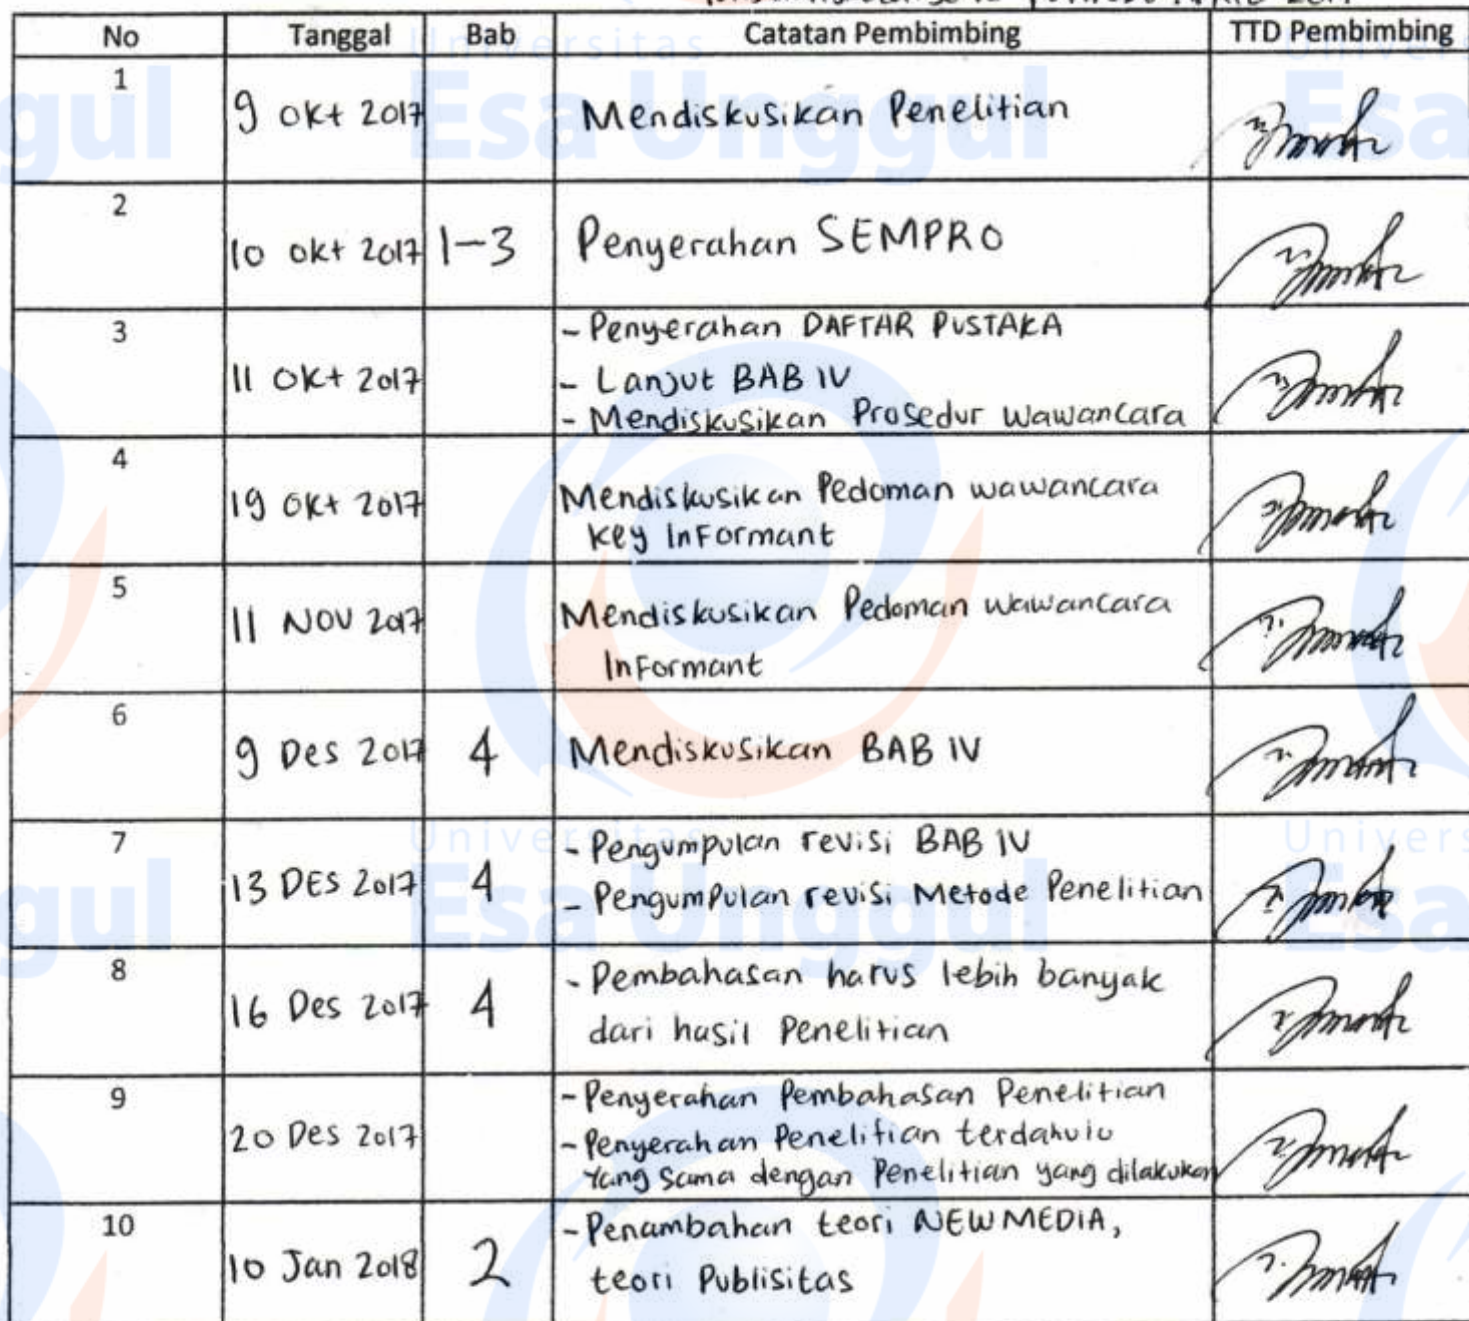 No Tanggal Bab Catatan Pembimbing TTD Pembimbing
1 9 Okt 2017 Mendiskusikan Penelitian
2 10 Okt 2017 1-3 Penyerahan SEMPRO
3 11 Okt 2017 - Penyerahan DAFTAR PUSTAKA
- Lanjut BAB IV
- Mendiskusikan Prosedur wawancara
4 19 Okt 2017 Mendiskusikan Pedoman wawancara
key Informant
5 11 NOV 2017 Mendiskusikan Pedoman wawancara
Informant
6 9 Des 2017 4 Mendiskusikan BAB IV
7 13 DES 2017 4 - Pengumpulan revisi BAB IV
- Pengumpulan revisi Metode Penelitian
8 16 Des 2017 4 - Pembahasan harus lebih banyak
dari hasil Penelitian
9 20 Des 2017 - Penyerahan Pembahasan Penelitian
- Penyerahan Penelitian terdahulu
Yang sama dengan Penelitian yang dilakukan
10 10 Jan 2018 2 - Penambahan teori NEW MEDIA,
teori Publisitas
Universitas
Esa Unggul
Universitas
Esa Unggul